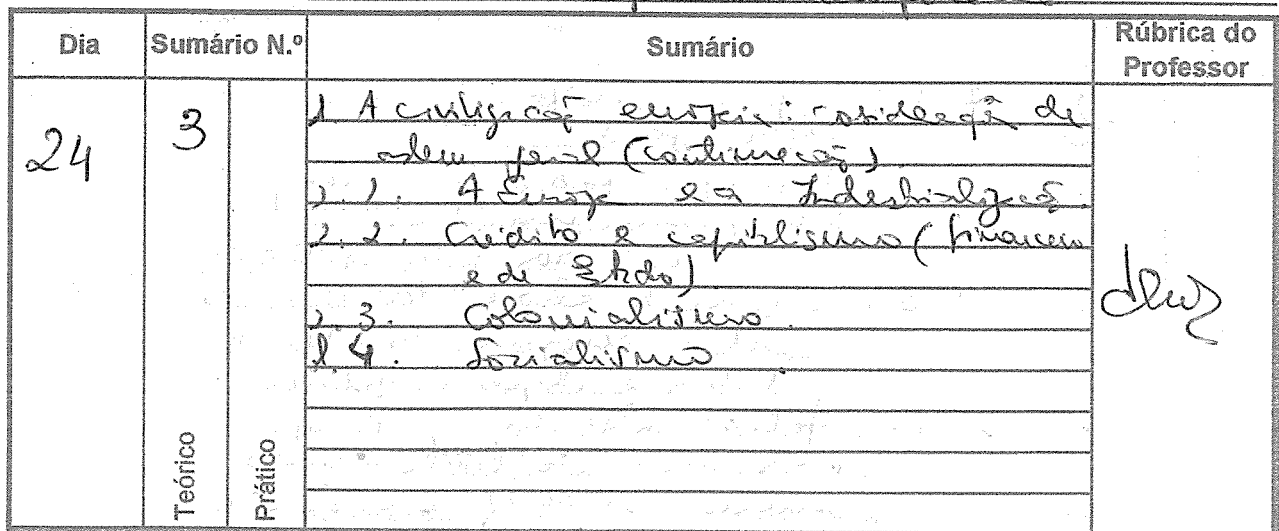 Dia Sumário N.º Sumário Rúbrica do Professor
24 3
1 A civilização europeia: consideração de
ordem geral (continuação)
1.1. A Europa e a Industrialização.
1.2. Crédito e capitalismo (financeiro
e de Estado)
1.3. Colonialismo.
1.4. Socialismo.
Teórico Prático